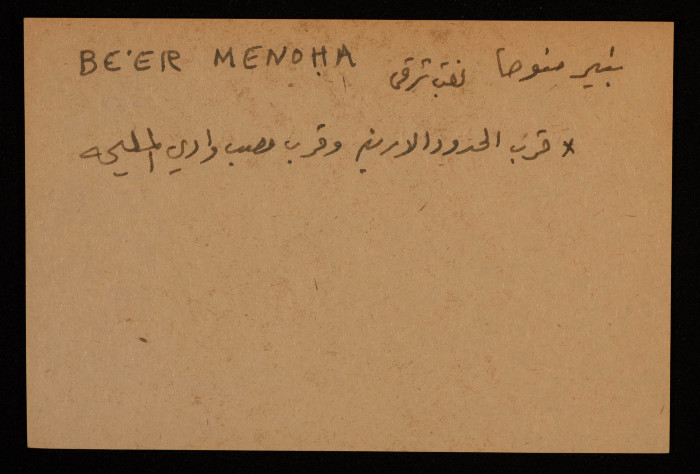 BE'ER MENOHA نقب شرقي بئير منوحا
* قرب الحدود الاردنية وقرب مصب وادي المليحه